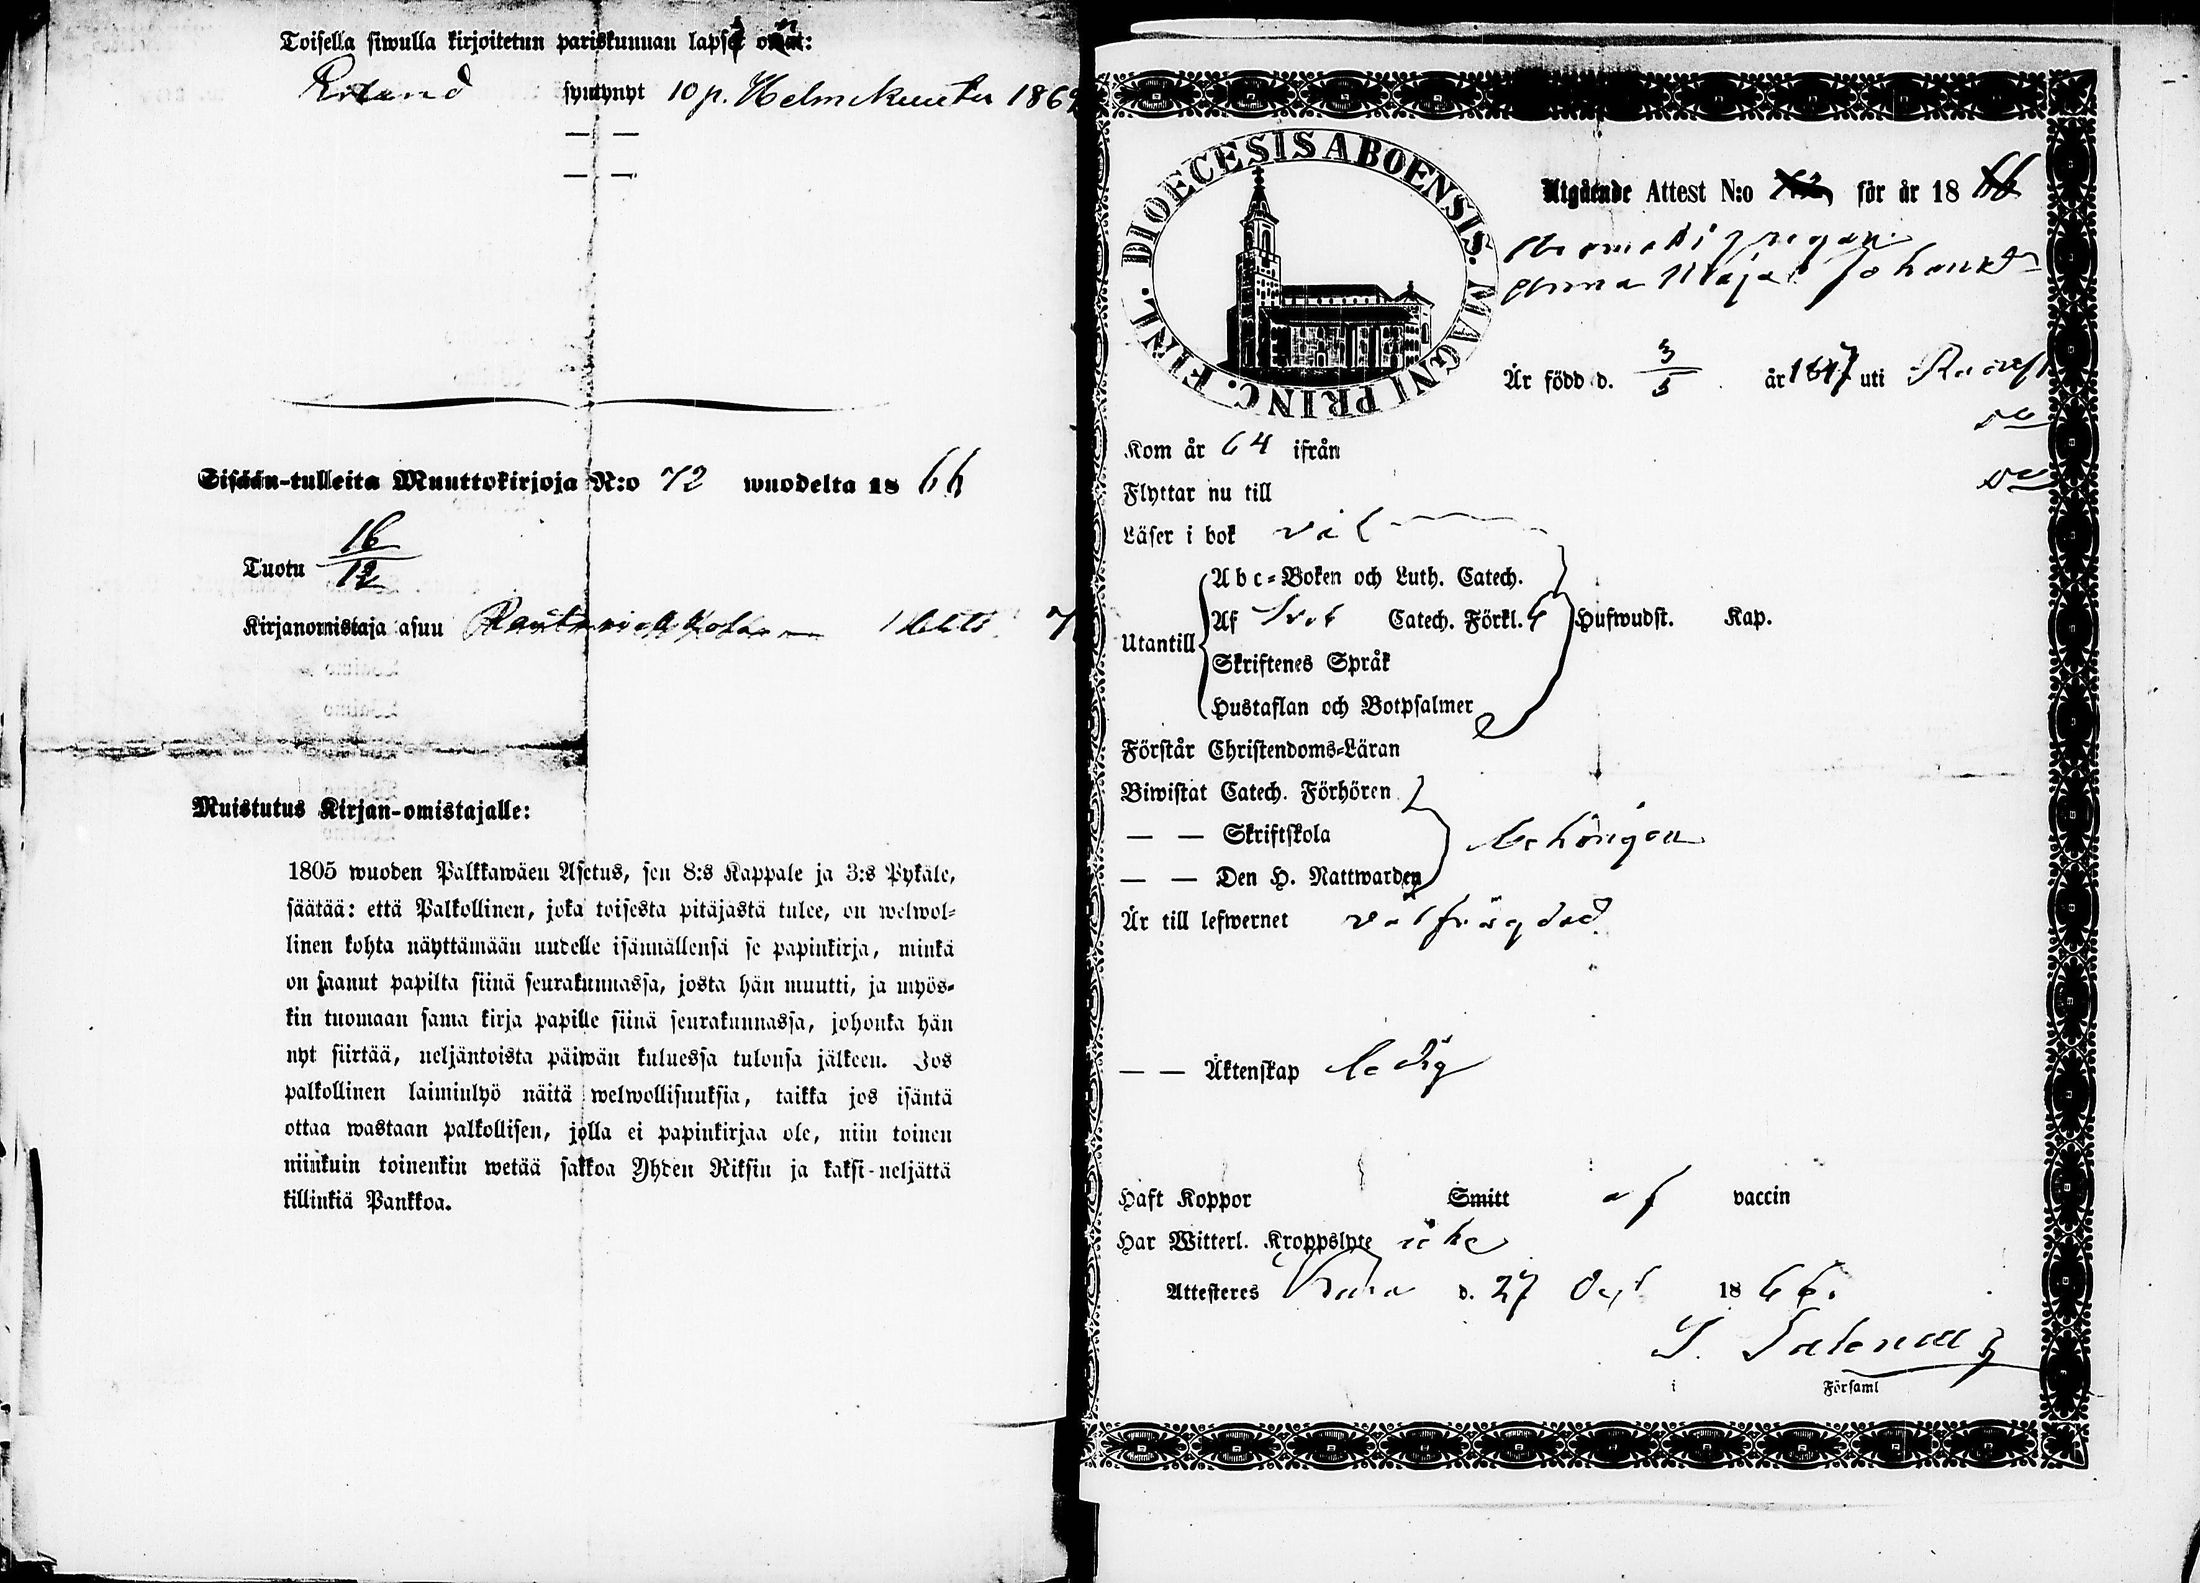 Toisella siwulla kirjoitetun pariskunnan lapset owat:
Erland syntynyt 10 p. Helmikuuta 186
— —
— —
Sisään-tulleita Muuttokirjoja N:o 72 wuodelta 18 66
Tuotu 16/12
Kirjanomistaja asuu
Muistutus Kirjan-omistajalle:
1805 wuoden Palkkawäen Asetus, sen 8:s Kappale ja 3:s Pykäle,
säätää: että Palkollinen, joka toisesta pitäjästä tulee, on welwol-
linen kohta näyttämään uudelle isännällensä se papinkirja, minkä
on saanut papilta siinä seurakunnassa, josta hän muutti, ja myös-
kin tuomaan sama kirja papille siinä seurakunnassa, johonka hän
nyt siirtää, neljäntoista päiwän kuluessa tulonsa jälkeen. Jos
palkollinen laiminlyö näitä welwollisuuksia, taikka jos isäntä
ottaa wastaan palkollisen, jolla ei papinkirjaa ole, niin toinen
niinkuin toinenkin wetää sakkoa Yhden Riksin ja kaksi-neljättä
killinkiä Pankkoa.
DIOECESIS ABOENSIS. MAGNI PRINC. FINL.
Utgående Attest N:o för år 18 66
Anna Maja Johansd
Är född d. 3/5 år 1847 uti
Kom år 64 ifrån
Flyttar nu till
Läser i bok väl
Utantill
Abc-Boken och Luth. Catech.
Af Sveb Catech. Förkl. 6 Hufwudst. Kap.
Skriftenes Språk
Hustaflan och Botpsalmer
Förstår Christendoms-Läran
Biwistat Catech. Förhören
— — Skriftskola behörigen
— — Den H. Nattwarden
Är till lefwernet välfrägdad
— — Äktenskap ledig
Haft Koppor Smitt af vaccin
Har Witterl. Kroppslyte icke
Attesteres d. 27 Oct 18 66.
i Församl